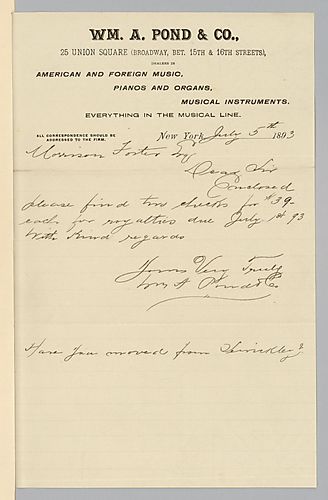 WM. A. POND & CO.,
25 UNION SQUARE (BROADWAY, BET. 15TH & 16TH STREETS),
DEALERS IN
AMERICAN AND FOREIGN MUSIC,
PIANOS AND ORGANS,
MUSICAL INSTRUMENTS.
EVERYTHING IN THE MUSICAL LINE.
ALL CORRESPONDENCE SHOULD BE
ADDRESSED TO THE FIRM.
New York July 5th 1893
Morrison Foster Esq
Dear Sir
Enclosed
please find two checks for $39-
each for royalties due July 1st 93
With Kind regards
Yours Very Truly
Wm A Pond & Co
Have you moved from Sewickley?